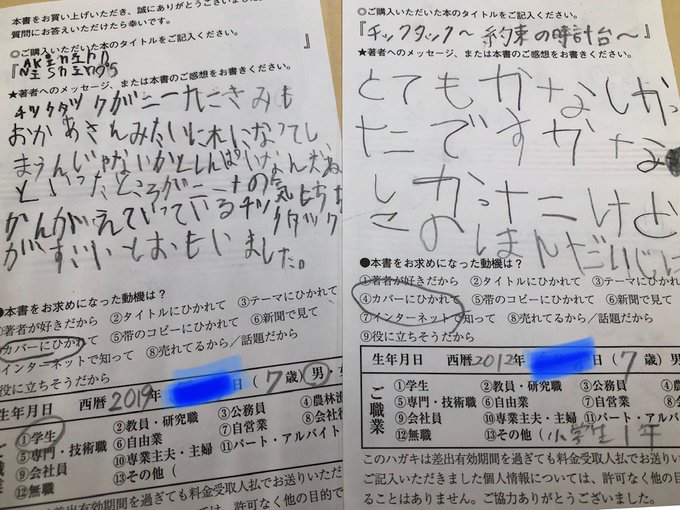 本書をお買い上げいただき、誠にありがとうございまし
質問にお答えいただけたら幸いです。
◎ご購入いただいた本のタイトルをご記入ください。
『
』
★著者へのメッセージ、または本書のご感想をお書きください。
チックタックがニーナにきみも
おかあさんみたいに
になってし
まうんじゃないかとしんぱいなんだね
といったところがニーナの気もちを
かんがえていっているチックタック
がすごいとおもいました。
●本書をお求めになった動機は?
①著者が好きだから ②タイトルにひかれて ③テーマにひかれて
カバーにひかれて ⑤帯のコピーにひかれて ⑥新聞で見て
インターネットで知って ⑧売れてるから/話題だから
役に立ちそうだから
生年月日 西暦2019年 日(7歳)男・
ご職業
①学生 ②教員・研究職 ③公務員 ④農林漁
⑤専門・技術職 ⑥自由業 ⑦自営業 ⑧会
⑨会社員 ⑩専業主夫・主婦 ⑪パート・アルバイト
⑫無職 ⑬その他(
はがきは差出有効期間を過ぎても料金受取人払でお送りいただ
いただきました個人情報については、許可なく他の目的で
◎ご購入いただいた本のタイトルをご記入ください。
『チックタック〜約束の時計台〜』
★著者へのメッセージ、または本書のご感想をお書きください。
とてもかなしかっ
たですがな
しかったけど
このほんだいじに
●本書をお求めになった動機は?
①著者が好きだから ②タイトルにひかれて ③テーマにひかれて
④カバーにひかれて ⑤帯のコピーにひかれて ⑥新聞で見て
⑦インターネットで知って ⑧売れてるから/話題だから
⑨役に立ちそうだから
生年月日 西暦2012年 日(7歳)男
ご職業
①学生 ②教員・研究職 ③公務員 ④農林
⑤専門・技術職 ⑥自由業 ⑦自営業 ⑧
⑨会社員 ⑩専業主夫・主婦 ⑪パート・アルバイト
⑫無職 ⑬その他(小学生1年
このハガキは差出有効期間を過ぎても料金受取人払でお送りい
ご記入いただきました個人情報については、許可なく他の目
ることはありません。ご協力ありがとうございました。